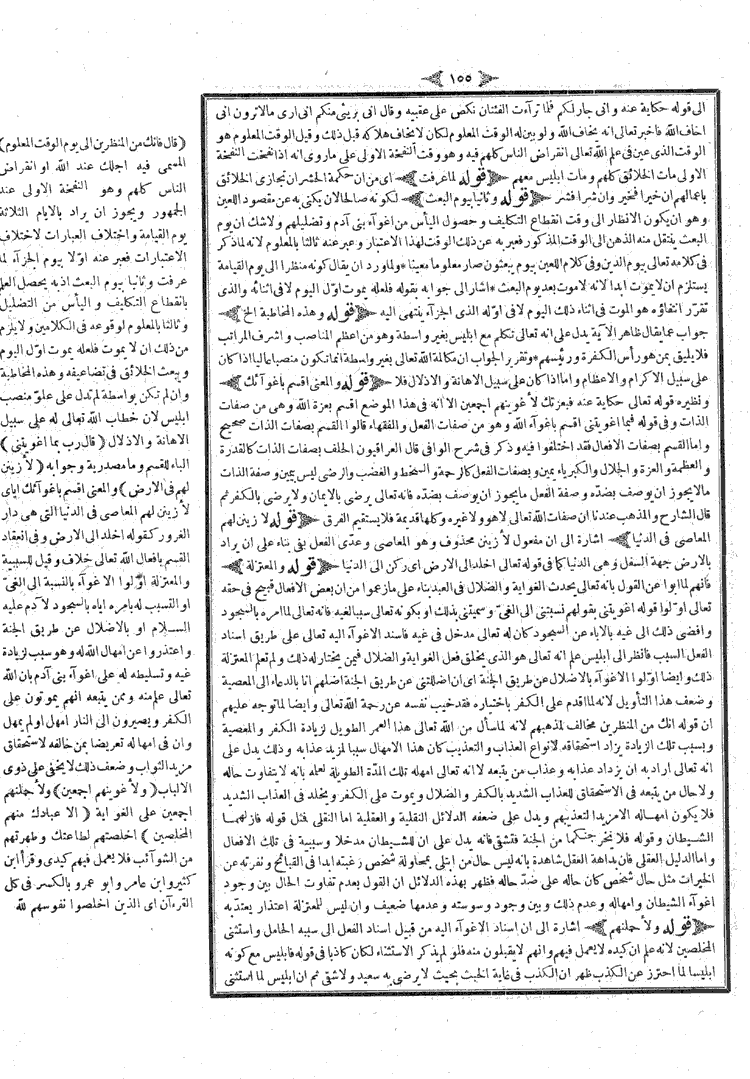 ١٥٥
الى قوله حكاية عنه وانى جار لكم فلما ترآءت الفئتان نكص على عقبيه وقال انى بريئ منكم انى ارى مالاترون انى
اخاف الله فاخبر تعالى انه يخاف الله ولو بين له الوقت المعلوم لكان لايخاف هلاكه قبل ذلك وقيل الوقت المعلوم هو
الوقت الذى عين فى علم الله تعالى انقراض الناس كلهم فيه وهو وقت النفخة الاولى على ماروى انه اذا نفخت النفخة
الاولى مات الخلائق كلهم ومات ابليس معهم ﴿ قوله لما عرفت ﴾ اى من ان حكمة الحشر ان يجازى الخلائق
باعمالهم ان خيرا فخير وان شرا فشر ﴿ قوله وثانيا بيوم البعث ﴾ لكونه صالحا لان يكنى به عن مقصود اللعين
وهو ان يكون الانظار الى وقت انقطاع التكليف وحصول اليأس من اغوآء بنى آدم وتضليلهم ولاشك ان يوم
البعث ينتقل منه الذهن الى الوقت المذكور فعبر به عن ذلك الوقت لهذا الاعتبار وعبر عنه ثالثا بالمعلوم لانه لما ذكر
فى كلامه تعالى بيوم الدين وفى كلام اللعين بيوم يبعثون صار معلوما معينا * ولما ورد ان يقال كونه منظرا الى يوم القيامة
يستلزم ان لايموت ابدا لانه لاموت بعد يوم البعث * اشار الى جوابه بقوله فلعله يموت اول اليوم لا فى اثنائه والذى
تقرر انتفاؤه هو الموت فى اثناء ذلك اليوم لا فى اوله الذى الجزآء ينتهى اليه ﴿ قوله وهذه المخاطبة الخ ﴾
جواب عما يقال ظاهر الآية يدل على انه تعالى تكلم مع ابليس بغير واسطة وهو من اعظم المناصب واشرف المراتب
فلا يليق بمن هو رأس الكفرة ورئيسهم * وتقرير الجواب ان مكالمة الله تعالى بغير واسطة انما تكون منصبا عاليا اذا كان
على سبيل الاكرام والاعظام واما اذا كان على سبيل الاهانة والاذلال فلا ﴿ قوله والمعنى اقسم باغوآئك ﴾
ونظيره قوله تعالى حكاية عنه فبعزتك لاغوينهم اجمعين الا انه فى هذا الموضع اقسم بعزة الله وهى من صفات
الذات وفى قوله فبما اغويتنى اقسم باغوآء الله وهو من صفات الفعل والفقهاء قالوا القسم بصفات الذات صحيح
واما القسم بصفات الافعال فقد اختلفوا فيه وذكر فى شرح الوافى قال العراقيون الحلف بصفات الذات كالقدرة
والعظمة والعزة والجلال والكبرياء يمين وبصفات الفعل كالرحمة والسخط والغضب والرضى ليس بيمين وصفة الذات
مالايجوز ان يوصف بضده وصفة الفعل مايجوز ان يوصف بضده فانه تعالى يرضى بالايمان ولايرضى بالكفر ثم
قال الشارح والمذهب عندنا ان صفات الله تعالى لاهو ولاغيره وكلها قديمة فلا يستقيم الفرق ﴿ قوله لازينن لهم
المعاصى فى الدنيا ﴾ اشارة الى ان مفعول لازينن محذوف وهو المعاصى وعدى الفعل بفى بناء على ان يراد
بالارض جهة السفل وهى الدنيا كما فى قوله تعالى اخلد الى الارض اى ركن الى الدنيا ﴿ قوله والمعتزلة ﴾
فانهم لما ابوا عن القول بانه تعالى يحدث الغواية والضلال فى العبد بناء على مازعموا من ان بعض الافعال قبيح فى حقه
تعالى اولوا قوله اغويتنى بقولهم نسبتنى الى الغى وسميتنى بذلك او بكونه تعالى سببا لغيه فانه تعالى لما امره بالسجود
وافضى ذلك الى غيه بالاباء عن السجود كان له تعالى مدخل فى غيه فاسند الاغوآء اليه تعالى على طريق اسناد
الفعل السبب فانظر الى ابليس علم انه تعالى هو الذى يخلق فعل الغواية والضلال فيمن يختار له ذلك ولم تعلم المعتزلة
ذلك وايضا اولوا الاغوآء بالاضلال عن طريق الجنة اى ان اضللتنى عن طريق الجنة اضلهم انا بالدعاء الى المعصية
وضعف هذا التأويل لانه لما اقدم على الكفر باختياره فقد خيب نفسه عن رحمة الله تعالى وايضا لما توجه عليهم
ان قوله انك من المنظرين مخالف لمذهبهم لانه لما سأل من الله تعالى هذا العمر الطويل لزيادة الكفر والمعصية
وبسبب تلك الزيادة يزاد استحقاقه لانواع العذاب والتعذيب كان هذا الامهال سببا لمزيد عذابه وذلك يدل على
انه تعالى اراد به ان يزداد عذابه وعذاب من يتبعه لا انه تعالى امهله تلك المدة الطويلة لعلمه بانه لايتفاوت حاله
ولاحال من يتبعه فى الاستحقاق للعذاب الشديد بالكفر والضلال ويموت على الكفر ويخلد فى العذاب الشديد
فلا يكون امهاله الا مزيدا لتعذيبهم ويدل على ضعفه الدلائل النقلية والعقلية اما النقلى فمثل قوله فازلهما
الشيطان وقوله فلا يخرجنكما من الجنة فتشقى فانه يدل على ان للشيطان مدخلا وسببية فى تلك الافعال
واما الدليل العقلى فان بداهة العقل شاهدة بانه ليس حال من ابتلى بمحاولة شخص رغبته ابدا فى القبائح ونفرته عن
الخيرات مثل حال شخص كان حاله على ضد حاله فظهر بهذه الدلائل ان القول بعدم تفاوت الحال بين وجود
اغوآء الشيطان وامهاله وعدم ذلك وبين وجود وسوسته وعدمها ضعيف وان ليس للمعتزلة اعتذار يعتد به
﴿ قوله ولاحملنهم ﴾ اشارة الى ان اسناد الاغوآء اليه من قبيل اسناد الفعل الى سببه الحامل واستثنى
المخلصين لانه علم ان كيده لايعمل فيهم وانهم لايقبلون منه فلو لم يذكر الاستثناء لكان كاذبا فى قوله فابليس مع كونه
ابليسا لما احترز عن الكذب ظهر ان الكذب فى غاية الخبث بحيث لايرضى به سعيد ولاشقى ثم ان ابليس لما استثنى
(قال فانك من المنظرين الى يوم الوقت المعلوم)
المسمى فيه اجلك عند الله او انقراض
الناس كلهم وهو النفخة الاولى عند
الجمهور ويجوز ان يراد بالايام الثلاثة
يوم القيامة واختلاف العبارات لاختلاف
الاعتبارات فعبر عنه اولا بيوم الجزآء لما
عرفت وثانيا بيوم البعث اذ به يحصل العلم
بانقطاع التكليف واليأس من التضليل
وثالثا بالمعلوم لوقوعه فى الكلامين ولايلزم
من ذلك ان لايموت فلعله يموت اول اليوم
ويبعث الخلائق فى تضاعيفه وهذه المخاطبة
وان لم تكن بواسطة لم تدل على علو منصب
ابليس لان خطاب الله تعالى له على سبيل
الاهانة والاذلال (قال رب بما اغويتنى)
الباء للقسم وما مصدرية وجوابه (لازينن
لهم فى الارض) والمعنى اقسم باغوآئك اياى
لازينن لهم المعاصى فى الدنيا التى هى دار
الغرور كقوله اخلد الى الارض وفى انعقاد
القسم بافعال الله تعالى خلاف وقيل للسببية
والمعتزلة اولوا الاغوآء بالنسبة الى الغى
او التسبب له بامره اياه بالسجود لآدم عليه
السلام او بالاضلال عن طريق الجنة
واعتذروا عن امهال الله له وهو سبب لزيادة
غيه وتسليطه له على اغوآء بنى آدم بان الله
تعالى علم منه وممن يتبعه انهم يموتون على
الكفر ويصيرون الى النار امهل او لم يمهل
وان فى امهاله تعريضا لمن خالفه لاستحقاق
مزيد الثواب وضعف ذلك لايخفى على ذوى
الالباب (ولاغوينهم اجمعين) ولاحملنهم
اجمعين على الغواية (الا عبادك منهم
المخلصين) اخلصتهم لطاعتك وطهرتهم
من الشوآئب فلا يعمل فيهم كيدى وقرأ ابن
كثير وابن عامر وابو عمرو بالكسر فى كل
القرءآن اى الذين اخلصوا نفوسهم لله